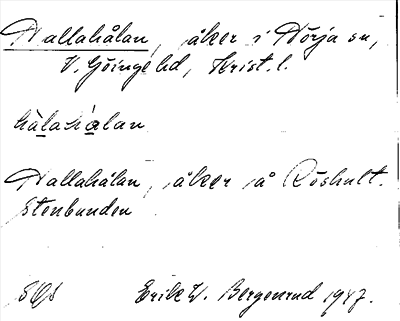 Hallahålan, åker i Nörja sn,
V. Göinge hd, Krist. l.
hàlahálan
Hallahålan, åker på Röshult.
Stenbunden
SOS Erik W. Bergenrud 1947.